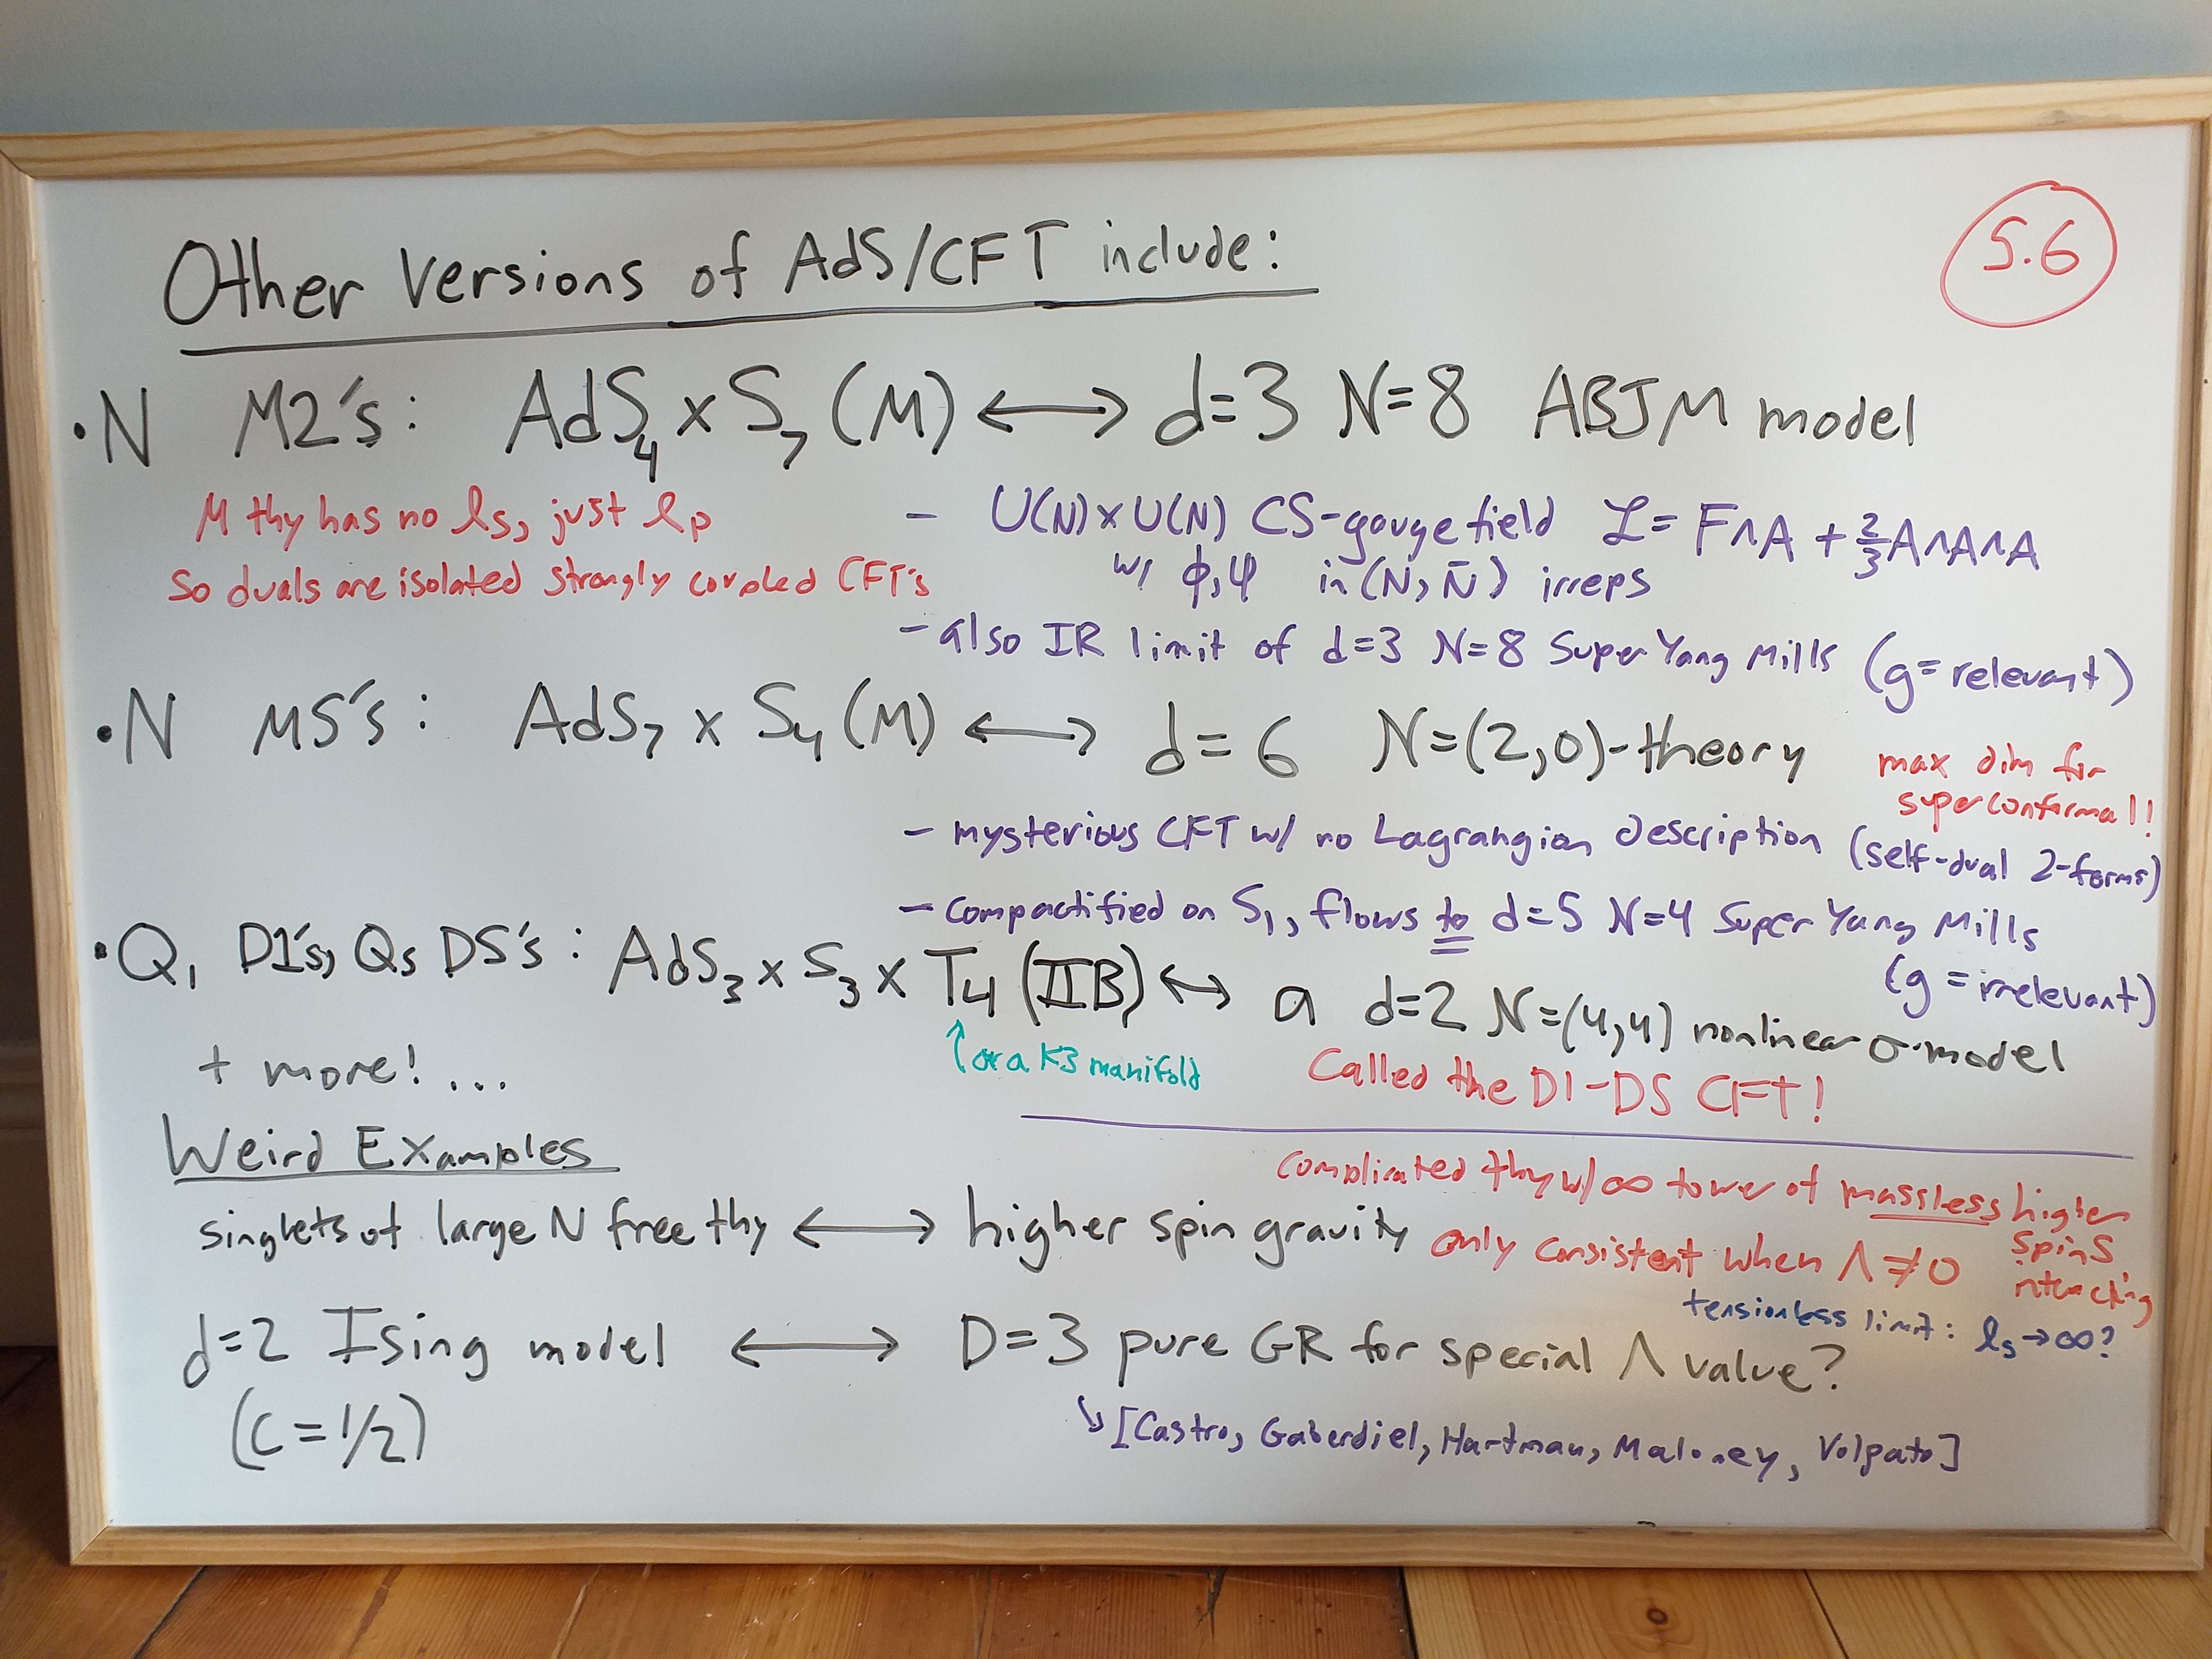 Other Versions of AdS/CFT include:
5.6
• N M2's: AdS₄ x S₇ (M) ⟷ d=3 N=8 ABJM model
M thy has no ls, just lp
so duals are isolated strongly coupled CFT's
– U(N)xU(N) CS-gauge field ℒ = F∧A + ⅔A∧A∧A
w/ ϕ,ψ in (N, N̄) irreps
– also IR limit of d=3 N=8 Super Yang Mills (g=relevant)
• N M5's: AdS₇ x S₄ (M) ⟷ d=6 N=(2,0)-theory
max dim for
superconformal!!
– mysterious CFT w/ no Lagrangian description (self-dual 2-forms)
– compactified on S₁, flows to d=5 N=4 Super Yang Mills
(g = irrelevant)
• Q₁ D1's, Q₅ D5's: AdS₃ x S₃ x T₄ (IIB) ↔ a d=2 N=(4,4) nonlinear σ-model
↑ or a K3 manifold
Called the D1-D5 CFT!
+ more! ...
Weird Examples
singlets of large N free thy ⟷ higher spin gravity
complicated thy w/ ∞ tower of massless higher
spins
interacting
only consistent when Λ≠0
tensionless limit: ls→∞?
d=2 Ising model ⟷ D=3 pure GR for special Λ value?
(C=1/2)
↘ [Castro, Gaberdiel, Hartman, Maloney, Volpato]